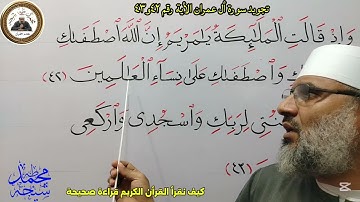 تجويد سورة آل عمران الآية رقم ٤٢و٤٣
وَإِذْ قَالَتِ الْمَلَٰٓئِكَةُ يَٰمَرْيَمُ إِنَّ اللَّهَ اصْطَفَىٰكِ
وَاصْطَفَىٰكِ عَلَىٰ نِسَآءِ الْعَٰلَمِينَ (٤٢)
لِرَبِّكِ وَاسْجُدِى وَارْكَعِى
(٤٣)
محمد شيحة
كيف نقرأ القرآن الكريم قراءة صحيحة